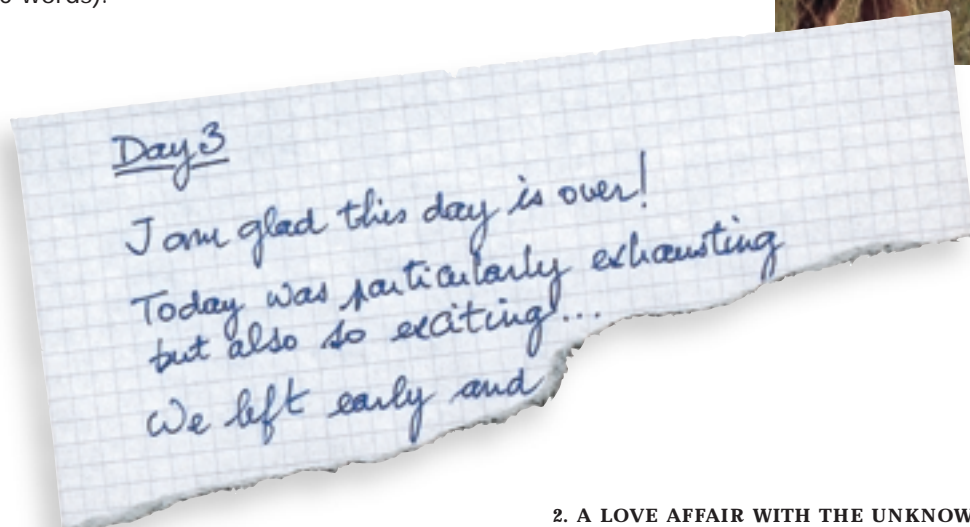 words).
Day 3
I am glad this day is over!
Today was particularly exhausting
but also so exciting...
We left early and
2. A LOVE AFFAIR WITH THE